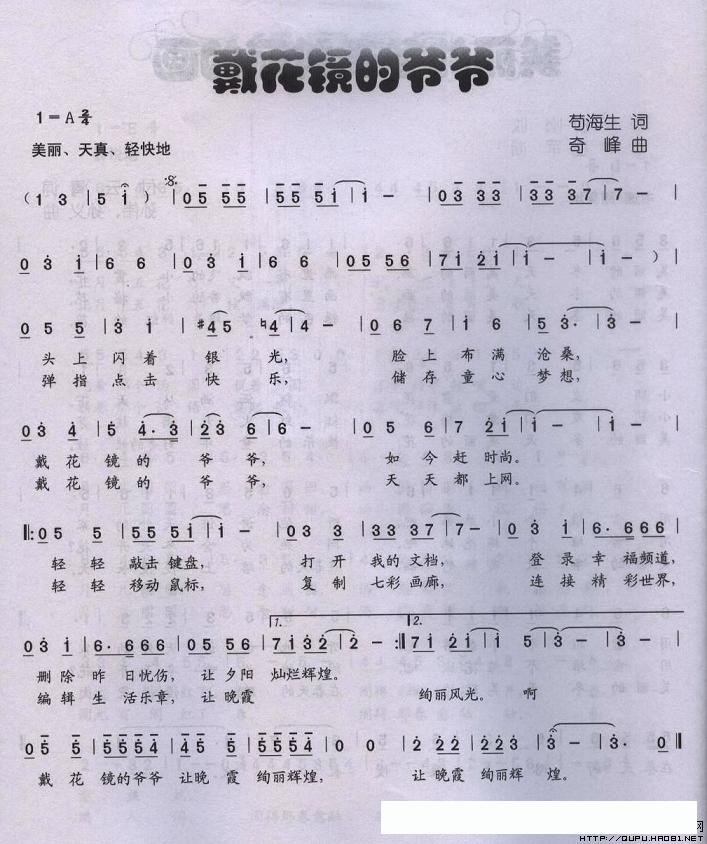 戴花镜的爷爷
1=A 2/4
苟海生 词
美丽、天真、轻快地
奇峰 曲
(1 3 | 5 i ) | 0 5 5 5 | 5 5 5 i | i - | 0 3 3 3 | 3 3 3 7 | 7 - |
0 3 i | 6 6 | 0 3 i | 6 6 | 0 5 5 6 | 7 i 2 i | i - | i - ) |
0 5 5 | 3 i | #4 5 | ♮4 4 - | 0 6 7 | i 6 | 5 3· | 3 - |
头 上 闪 着 银 光, 脸 上 布 满 沧 桑,
弹 指 点 击 快 乐, 储 存 童 心 梦 想,
0 3 4 | 5 4·3 | 2 3 6 | 6 - | 0 5 6 | 7 2 i | i - | i - |
戴 花 镜 的 爷 爷, 如 今 赶 时尚。
戴 花 镜 的 爷 爷, 天 天 都 上网。
‖: 0 5 5 | 5 5 5 i | i - | 0 3 3 | 3 3 3 7 | 7 - | 0 3 i | 6· 6 6 6 |
轻 轻 敲击 键盘, 打 开 我的 文档, 登 录 幸 福频道,
轻 轻 移动 鼠标, 复 制 七彩 画廊, 连 接 精 彩世界,
1. 2.
0 3 i | 6· 6 6 6 | 0 5 5 6 | 7 i 3 2 | 2 - :‖ 7 i 2 i | i 5 | 3 - | 3 - |
删 除 昨 日忧伤, 让 夕阳 灿烂辉煌。
编 辑 生 活乐章, 让 晚霞 绚丽风光。 啊
0 5 5 | 5 5 5 4 | 4 5 5 | 5 5 5 4 | 0 0 | 2 2 2 | 2 2 2 3 | 3 - | 3· 0 ‖
戴 花 镜的爷爷 让晚 霞 绚丽辉煌, 让 晚霞 绚丽辉 煌。
网
HTTP://QUPU.HAO81.NET